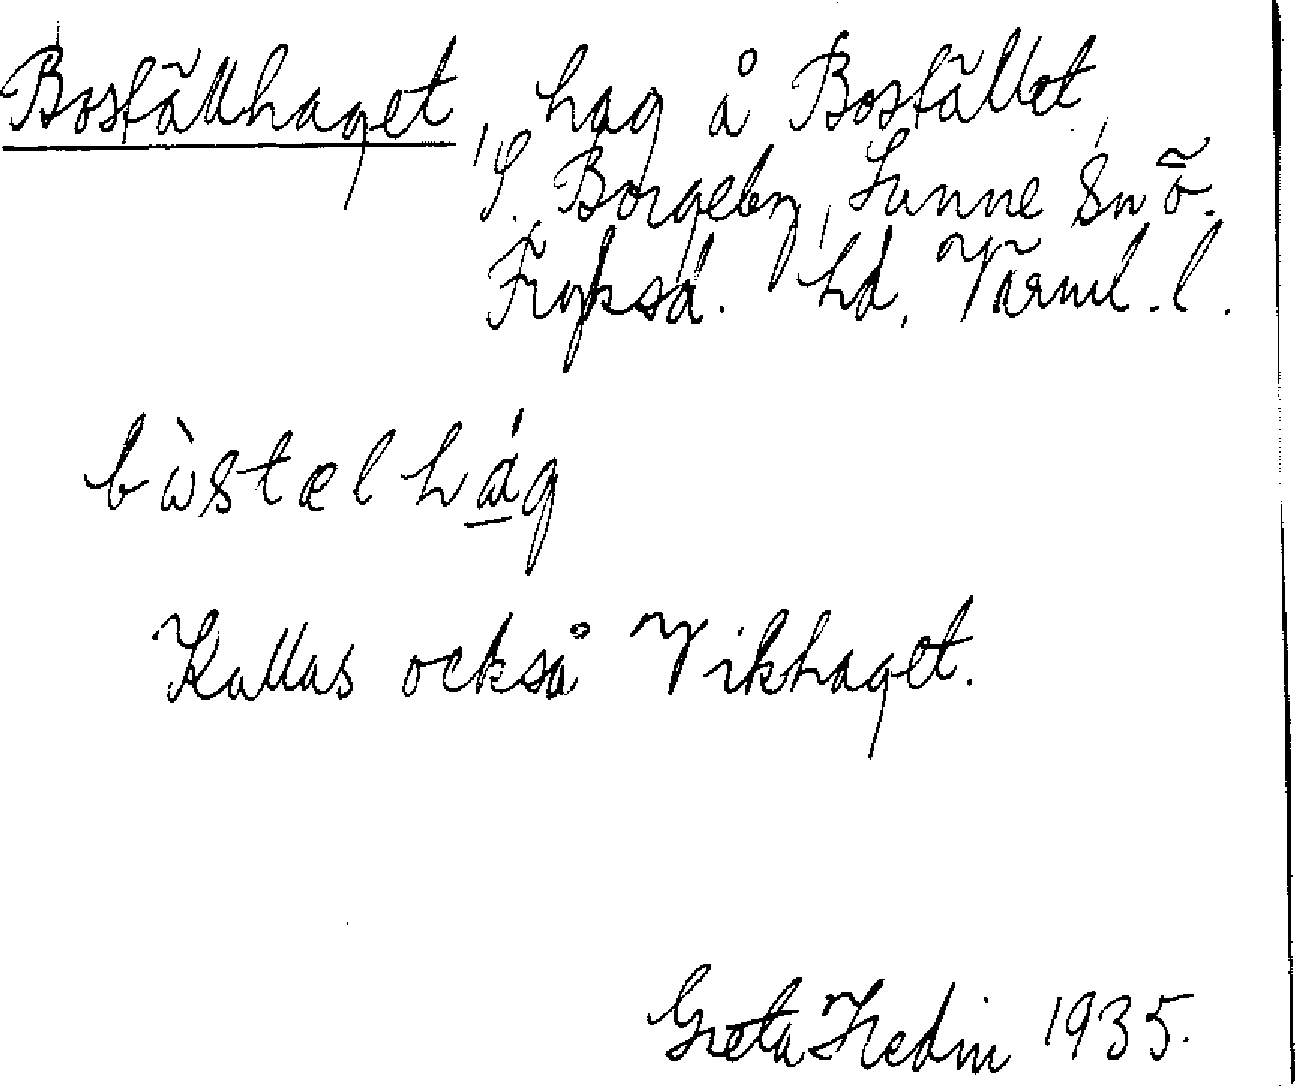 Boställhaget, hag å Bostället,
S. Borgeby, Sunne sn Ö.
Fryksd. hd, Värml. l.
bùstælhág
Kallas också Vikhaget.
Greta Hedin 1935.